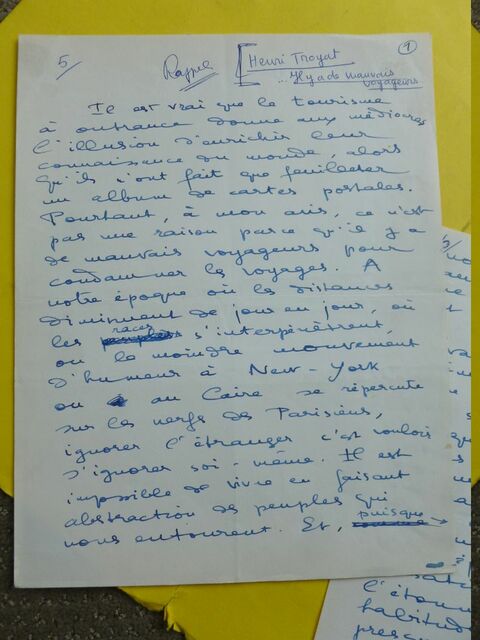 5/
Rappel
1
Henri Troyat
... Il y a de mauvais
voyageurs
Il est vrai que le tourisme
à outrance donne aux médiocres
l'illusion d'enrichir leur
connaissance du monde, alors
qu'ils n'ont fait que feuilleter
un album de cartes postales.
Pourtant, à mon avis, ce n'est
pas une raison parce qu'il y a
de mauvais voyageurs pour
condamner les voyages. A
notre époque où les distances
diminuent de jour en jour, où
les races s'interpénètrent,
où le moindre mouvement
d'humeur à New-York
ou au Caire se répercute
sur les nerfs des Parisiens,
ignorer l'étranger c'est vouloir
s'ignorer soi-même. Il est
impossible de vivre en faisant
abstraction des peuples qui
nous entourent. Et, puisque →
5/
l'éton
habitud
presq